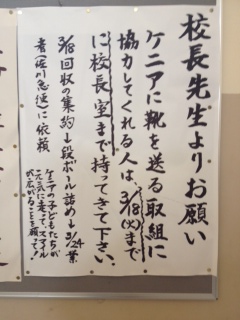 校長先生よりお願い
ケニアに靴を送る取組に
協力してくれる人は、3/18(火)まで
に校長室まで持ってきて下さい。
3/18回収の集約→段ボール詰め→3/24業
者(佐川急便)に依頼
ケニアの子どもたちが
元気に走って、スマイル
が広がることを願って!